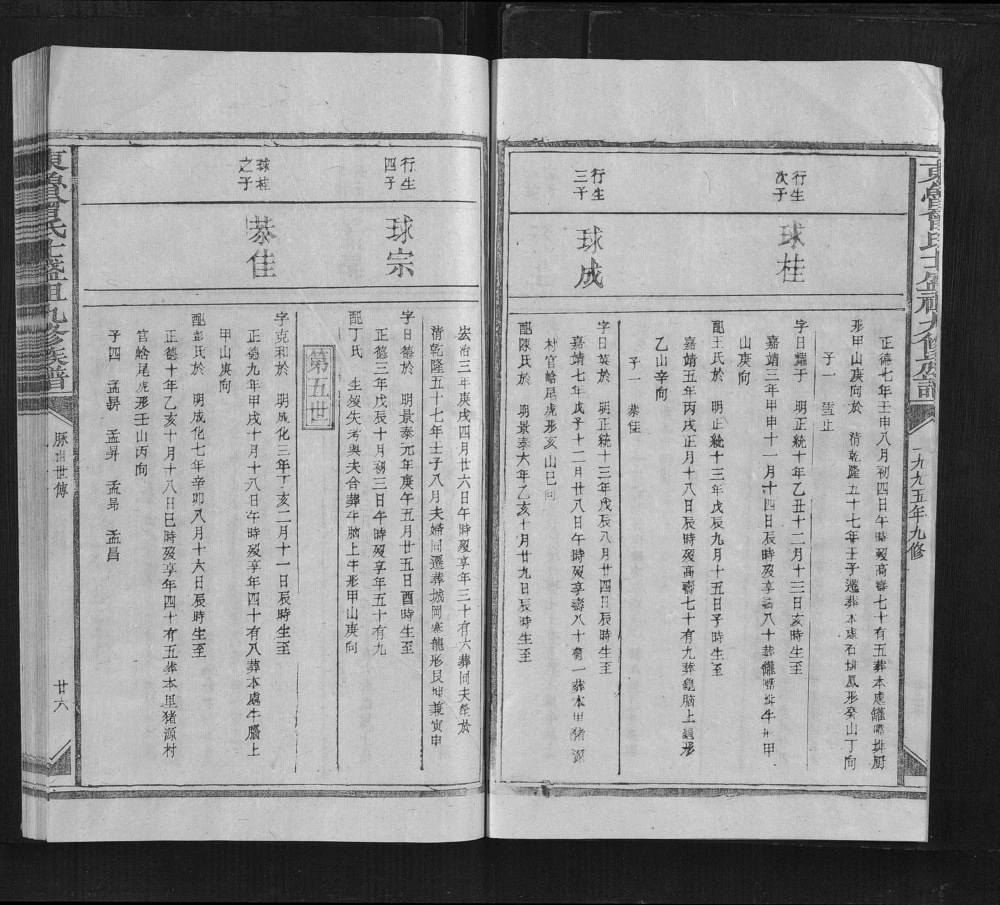 一九九五年九修
正德七年壬申八月初四日午時歿高壽七十有五葬本處鑵嘴排厨
形甲山庚向於 清乾隆五十七年壬子遷葬本處石排鳳形癸山丁向
子一
行生
次子
球桂
字日耀于 明正統十年乙丑十二月十三日亥時生至
嘉靖三年甲申十一月十四日辰時歿享壽八十葬鑵嘴排牛形甲
山庚向
配王氏於 明正統十三年戊辰九月十五日子時生至
嘉靖五年丙戌正月十八日辰時歿高壽七十有九葬龜腦上龜形
乙山辛向
子一 恭佳
行生
三子
球成
字日英於 明正統十三年戊辰八月廿四日辰時生至
嘉靖七年戊子十二月廿八日午時歿享壽八十有一葬本里豬源
村官峆尾虎形亥山巳向
配陳氏於 明景泰六年乙亥十月廿九日辰時生至
宏治三年庚戌四月廿六日午時歿享年三十有六葬同夫塋於
清乾隆五十七年壬子八月夫婦同遷葬城岡寨龍形艮坤兼寅申
行生
四子
球宗
字日德於 明景泰元年庚午五月廿五日酉時生至
正德三年戊辰十月初三日午時歿享年五十有九
配丁氏 生歿失考與夫合葬牛腦上牛形甲山庚向
第五世
球桂
之子
恭佳
字克和於 明成化三年丁亥二月十一日辰時生至
正德九年甲戌十月十八日午時歿享年四十有八葬本處牛腦上
甲山庚向
配彭氏於 明成化七年辛卯八月十六日辰時生至
正德十年乙亥十月十八日巳時歿享年四十有五葬本里豬源村
官峆尾虎形壬山丙向
子四 孟昇 孟昌
東魯曾氏士盛祖九修族譜
世傳
廿六